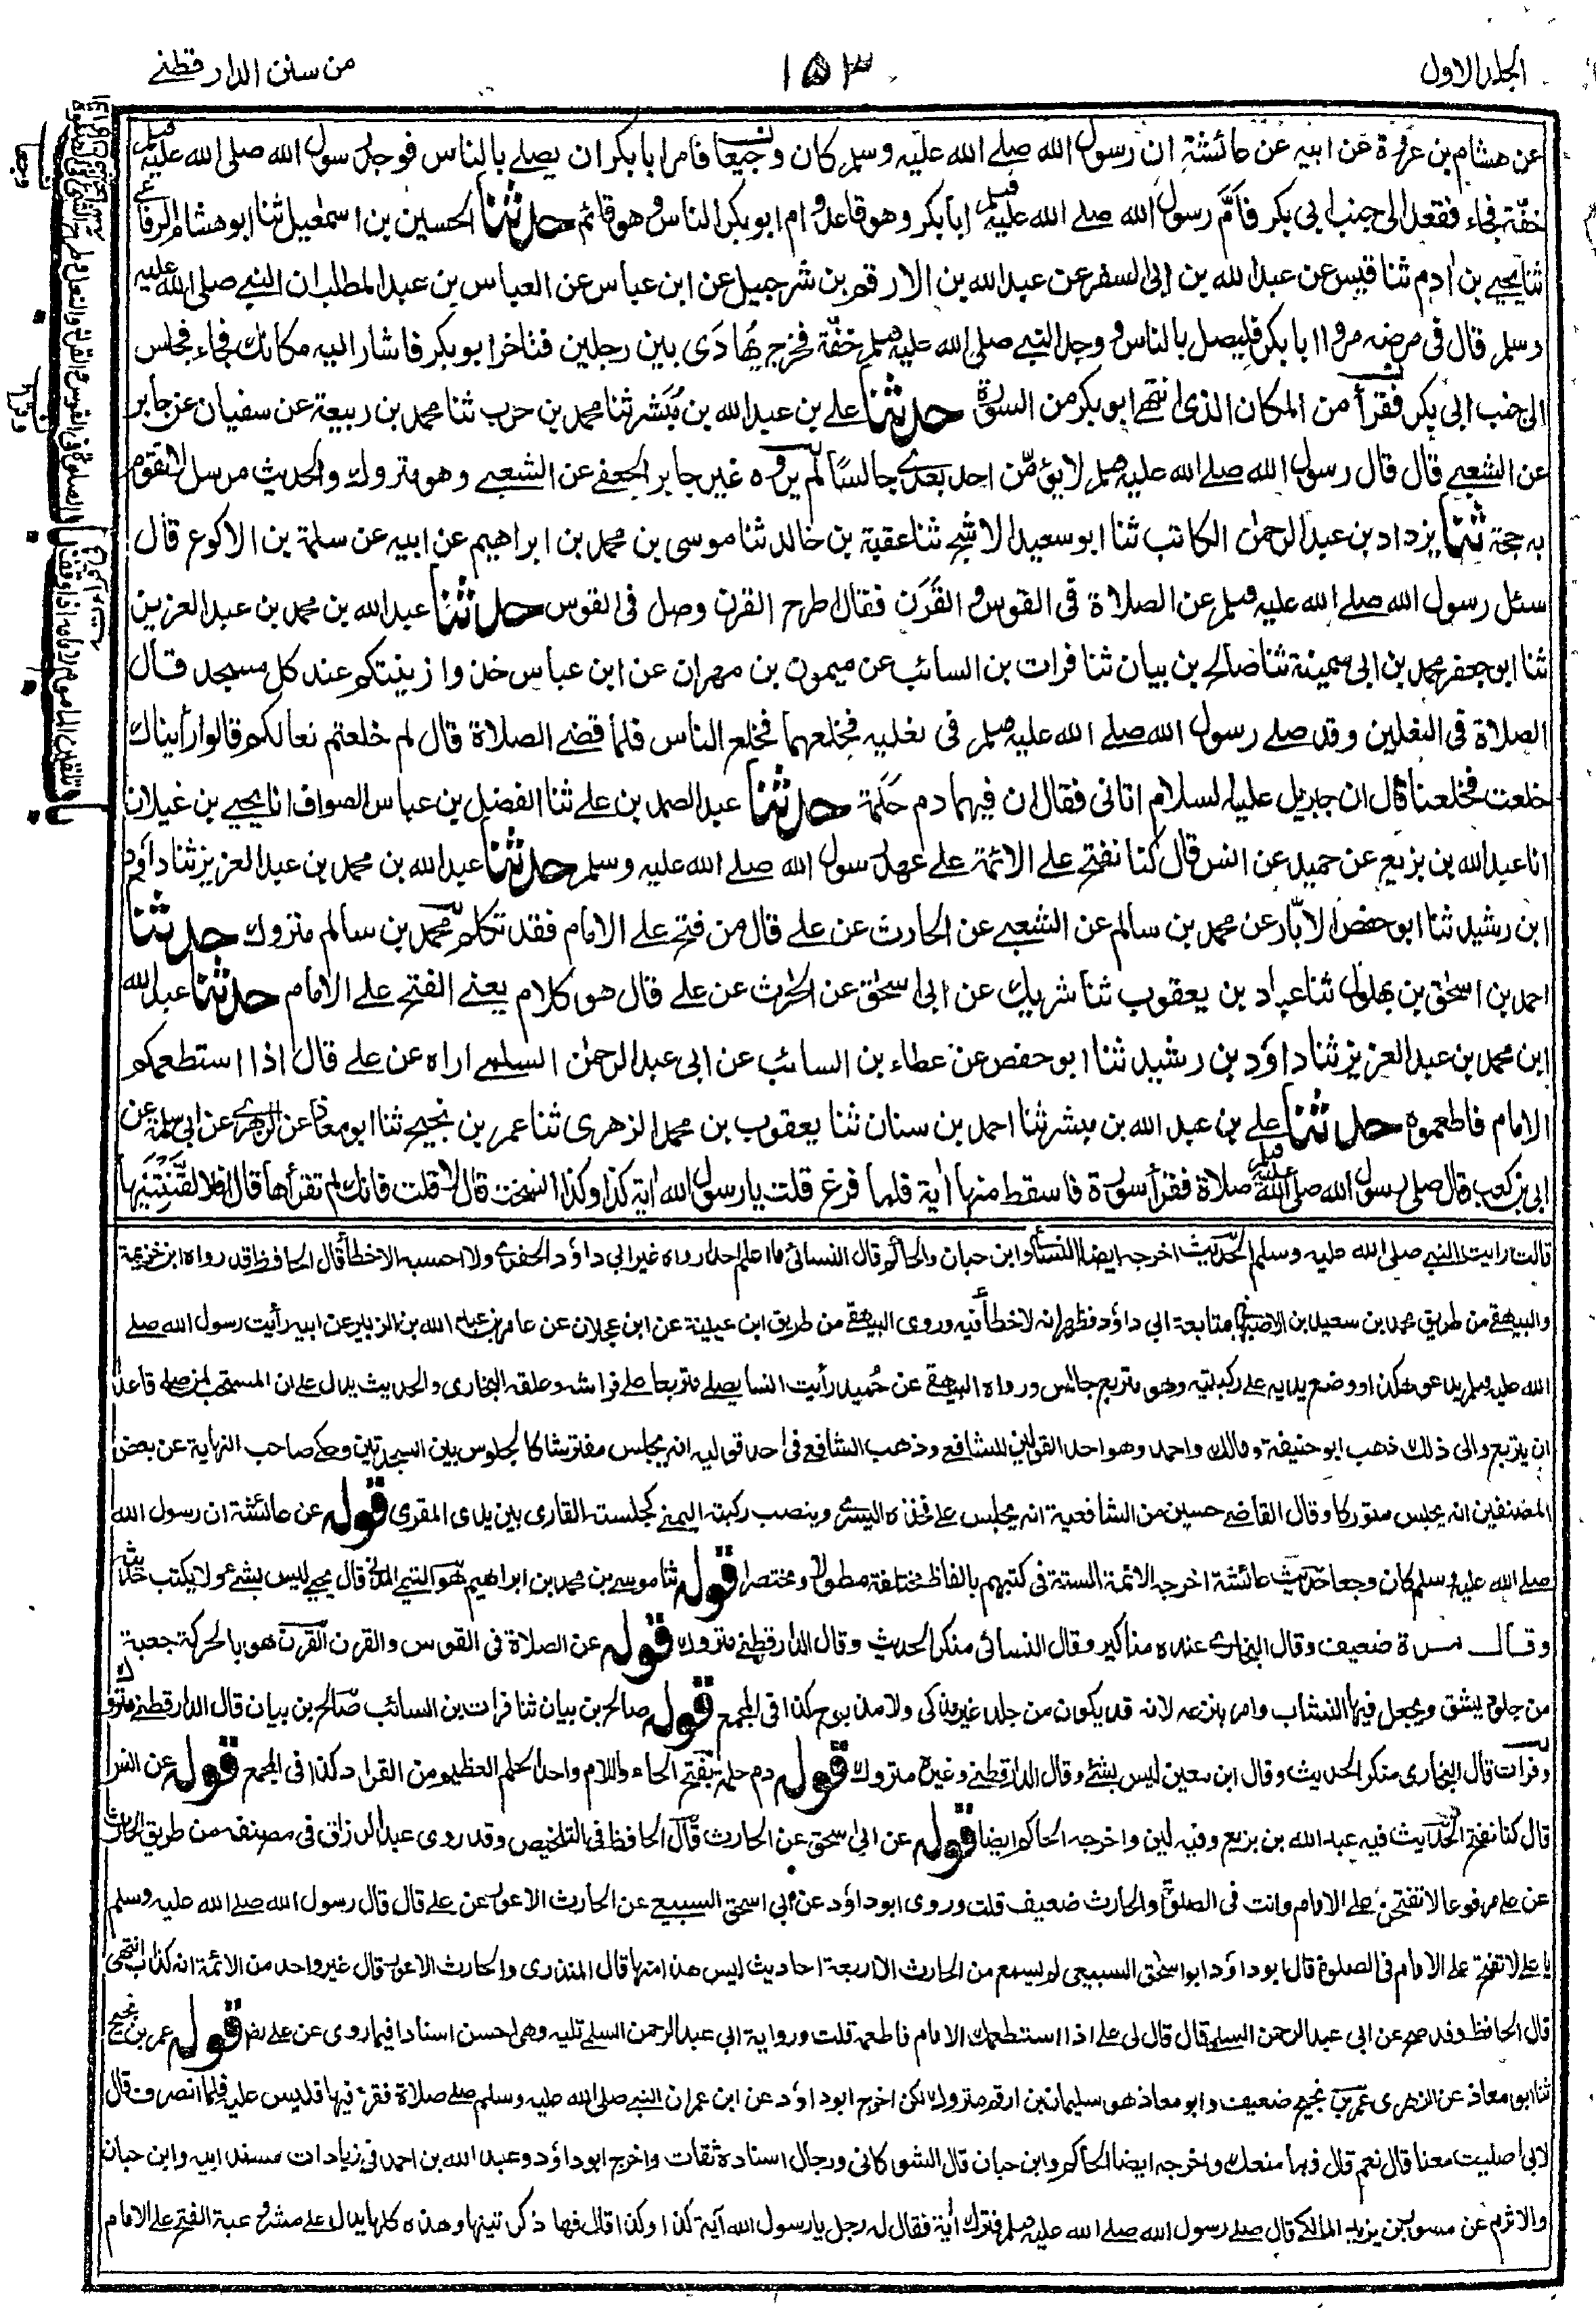 الجلد الاول
١٥٣
من سنن الدار قطنے
عن هشام بن عروة عن ابيه عن عائشة ان رسول الله صلے الله عليه وسلم كان وجيعا فامر ابا بكر ان يصلے بالناس فوجد رسول الله صلى الله عليه وسلم
خفة فجاء فقعد الى جنب ابى بكر فأمّ رسول الله صلے الله عليه وسلم ابا بكر وهو قاعد و ام ابو بكر الناس وهو قائم حدثنا الحسين بن اسمعيل ثنا ابو هشام الرفاعے
ثنا يحيے بن ادم ثنا قيس عن عبد الله بن ابى السفر عن عبد الله بن الارقم بن شرحبيل عن ابن عباس عن العباس بن عبد المطلب ان النبے صلى الله عليه
وسلم قال فى مرضه مروا ابا بكر فليصل بالناس و وجد النبے صلى الله عليه وسلم خفّة فخرج يُهادَى بين رجلين فتاخر ابو بكر فاشار اليه مكانك فجاء فجلس
الى جنب ابى بكر فقرأ من المكان الذى انتهے ابو بكر من السورة حدثنا علے بن عبد الله بن مُبَشر ثنا محمد بن حرب ثنا محمد بن ربيعة عن سفيان عن جابر
عن الشعبے قال قال رسول الله صلے الله عليه وسلم لا يؤمّن احد بعدے جالسًا لم يروه غير جابر الجعفے عن الشعبے وهو متروك والحديث مرسل لا تقوم
به حجة ثنا يزداد بن عبد الرحمن الكاتب ثنا ابو سعيد الاشج ثنا عقبة بن خالد ثنا موسى بن محمد بن ابراهيم عن ابيه عن سلمة بن الاكوع قال
سئل رسول الله صلے الله عليه وسلم عن الصلاة فى القوس و القَرَن فقال اطرح القرن وصل فى القوس حدثنا عبد الله بن محمد بن عبد العزيز
ثنا ابو جعفر محمد بن ابى سمينة ثنا صالح بن بيان ثنا فرات بن السائب عن ميمون بن مهران عن ابن عباس خذوا زينتكم عند كل مسجد قال
الصلاة فى النعلين وقد صلے رسول الله صلے الله عليه وسلم فى نعليه فخلعهما فخلع الناس فلما قضے الصلاة قال لم خلعتم نعالكم قالوا رأيناك
خلعت فخلعنا قال ان جبريل عليه السلام اتانى فقال ان فيهما دم حَلَمة حدثنا عبد الصمد بن علے ثنا الفضل بن عباس الصواف انا يحيے بن غيلان
انا عبد الله بن بزيع عن حميد عن انس قال كنا نفتح علے الائمة علے عهد رسول الله صلے الله عليه وسلم حدثنا عبد الله بن محمد بن عبد العزيز ثنا داؤد
ابن رشيد ثنا ابو حفص الابّار عن محمد بن سالم عن الشعبے عن الحارث عن علے قال من فتح علے الامام فقد تكلم محمد بن سالم متروك حدثنا
احمد بن اسحٰق بن بهلول ثنا عباد بن يعقوب ثنا شريك عن ابى اسحٰق عن الحرث عن علے قال هو كلام يعنے الفتح علے الامام حدثنا عبد الله
ابن محمد بن عبد العزيز ثنا داؤد بن رشيد ثنا ابو حفص عن عطاء بن السائب عن ابى عبد الرحمٰن السلمے اراه عن علے قال اذا استطعمكم
الامام فاطعموه حدثنا علے بن عبد الله بن مبشر ثنا احمد بن سنان ثنا يعقوب بن محمد الزهرى ثنا عمر بن نجيح ثنا ابو معاذ عن الزهرے عن ابى سلمة عن
ابى بن كعب قال صلى رسول الله صلى الله عليه وسلم صلاة فقرأ سورة فاسقط منها اٰية فلما فرغ قلت يا رسول الله اٰية كذا وكذا انسخت قال لا قلت فانك لم تقرأها قال افلا لقنتنيها
قالت رايت النبے صلى الله عليه وسلم الحديث اخرجه ايضا النسائى وابن حبان والحاكم قال النسائى ما اعلم احدا رواه غير ابى داؤد الحفرے ولا احسبه الا خطأ قال الحافظ قد رواه ابن خزيمة
والبيهقے من طريق محمد بن سعيد بن الاصبهانى بمتابعة ابى داؤد فظهر انه لا خطأ فيه وروى البيهقے من طريق ابن عيينة عن ابن عجلان عن عامر بن عبد الله بن الزبير عن ابيه رأيت رسول الله صلے
الله عليه وسلم يدعو هكذا ووضع يديه على ركبتيه وهو متربع جالس ورواه البيهقے عن حُميد رأيت انسا يصلے متربعا علے فراشه وعلقه البخارى والحديث يدل على ان المستحب لمن صلے قاعدا
ان يتربع والى ذلك ذهب ابو حنيفة ومالك واحمد وهو احد القولين للشافعے وذهب الشافعے فى احد قوليه انه يجلس مفترشا كالجلوس بين السجدتين وحكے صاحب النهاية عن بعض
المصنفين انه يجلس متوركا وقال القاضے حسين من الشافعية انه يجلس علے فخذه اليسرے وينصب ركبته اليمنے كجلسة القارى بين يدى المقرى قوله عن عائشة ان رسول الله
صلے الله عليه وسلم كان وجعا حديث عائشة اخرجه الائمة الستة فى كتبهم بالفاظ مختلفة مطولا ومختصرا قوله ثنا موسے بن محمد بن ابراهيم هو التيمے المدنى قال يحيے ليس بشئ ولا يكتب حديثه
وقال مرة ضعيف وقال البخارے عنده مناكير وقال النسائى منكر الحديث وقال الدارقطنے متروك قوله عن الصلاة فى القوس والقرن القرن هو بالحركة جعبة
من جلود يشق ويجعل فيها النشاب وامر بنزعه لانه قد يكون من جلد غير مذكى ولا مدبوح كذا فى المجمع قوله صالح بن بيان ثنا فرات بن السائب صالح بن بيان قال الدارقطنے متروك
وفرات قال البخارى منكر الحديث وقال ابن معين ليس بشئے وقال الدارقطنے وغيره متروك قوله دم حلمة بفتح الحاء واللام واحد الحلم العظيم من القراد كذا فى المجمع قوله عن انس
قال كنا نفتح الحديث فيه عبد الله بن بزيع وفيه لين واخرجه الحاكم ايضا قوله عن ابى اسحق عن الحارث قال الحافظ فى التلخيص وقد روى عبد الرزاق فى مصنفه من طريق الحارث
عن علے مرفوعا لا تفتحن علے الامام وانت فى الصلوة والحارث ضعيف قلت وروى ابو داؤد عن ابى اسحق السبيعے عن الحارث الاعور عن علے قال قال رسول الله صلے الله عليه وسلم
يا علے لا تفتح علے الامام فى الصلوة قال ابو داؤد ابو اسحٰق السبيعى لم يسمع من الحارث الا اربعة احاديث ليس هذا منها قال المنذرى والحارث الاعور قال غير واحد من الائمة انه كذاب انتهى
قال الحافظ وقد صح عن ابى عبد الرحمن السلمے قال قال لى علے اذا استطعمك الامام فاطعمه قلت ورواية ابى عبد الرحمن السلمے تليه وهى احسن اسنادا فيما روى عن علے رضـ قوله عمر بن نجيح
ثنا ابو معاذ عن الزهرى عمر بن نجيح ضعيف وابو معاذ هو سليمان بن ارقم متروك لكن اخرج ابو داؤد عن ابن عمر ان النبے صلى الله عليه وسلم صلے صلاة فقرء فيها فلبس عليه فلما انصرف قال
لابى اصليت معنا قال نعم قال فما منعك واخرجه ايضا الحاكم وابن حبان قال الشوكانى ورجال اسناده ثقات واخرج ابو داؤد وعبد الله بن احمد فى زيادات مسند ابيه وابن حبان
والاثرم عن مسور بن يزيد المالكے قال صلے رسول الله صلے الله عليه وسلم فترك اٰية فقال له رجل يا رسول الله آية كذا وكذا قال فهلا ذكرتنيها وهذه كلها يدل على مشروعية الفتح علے الامام